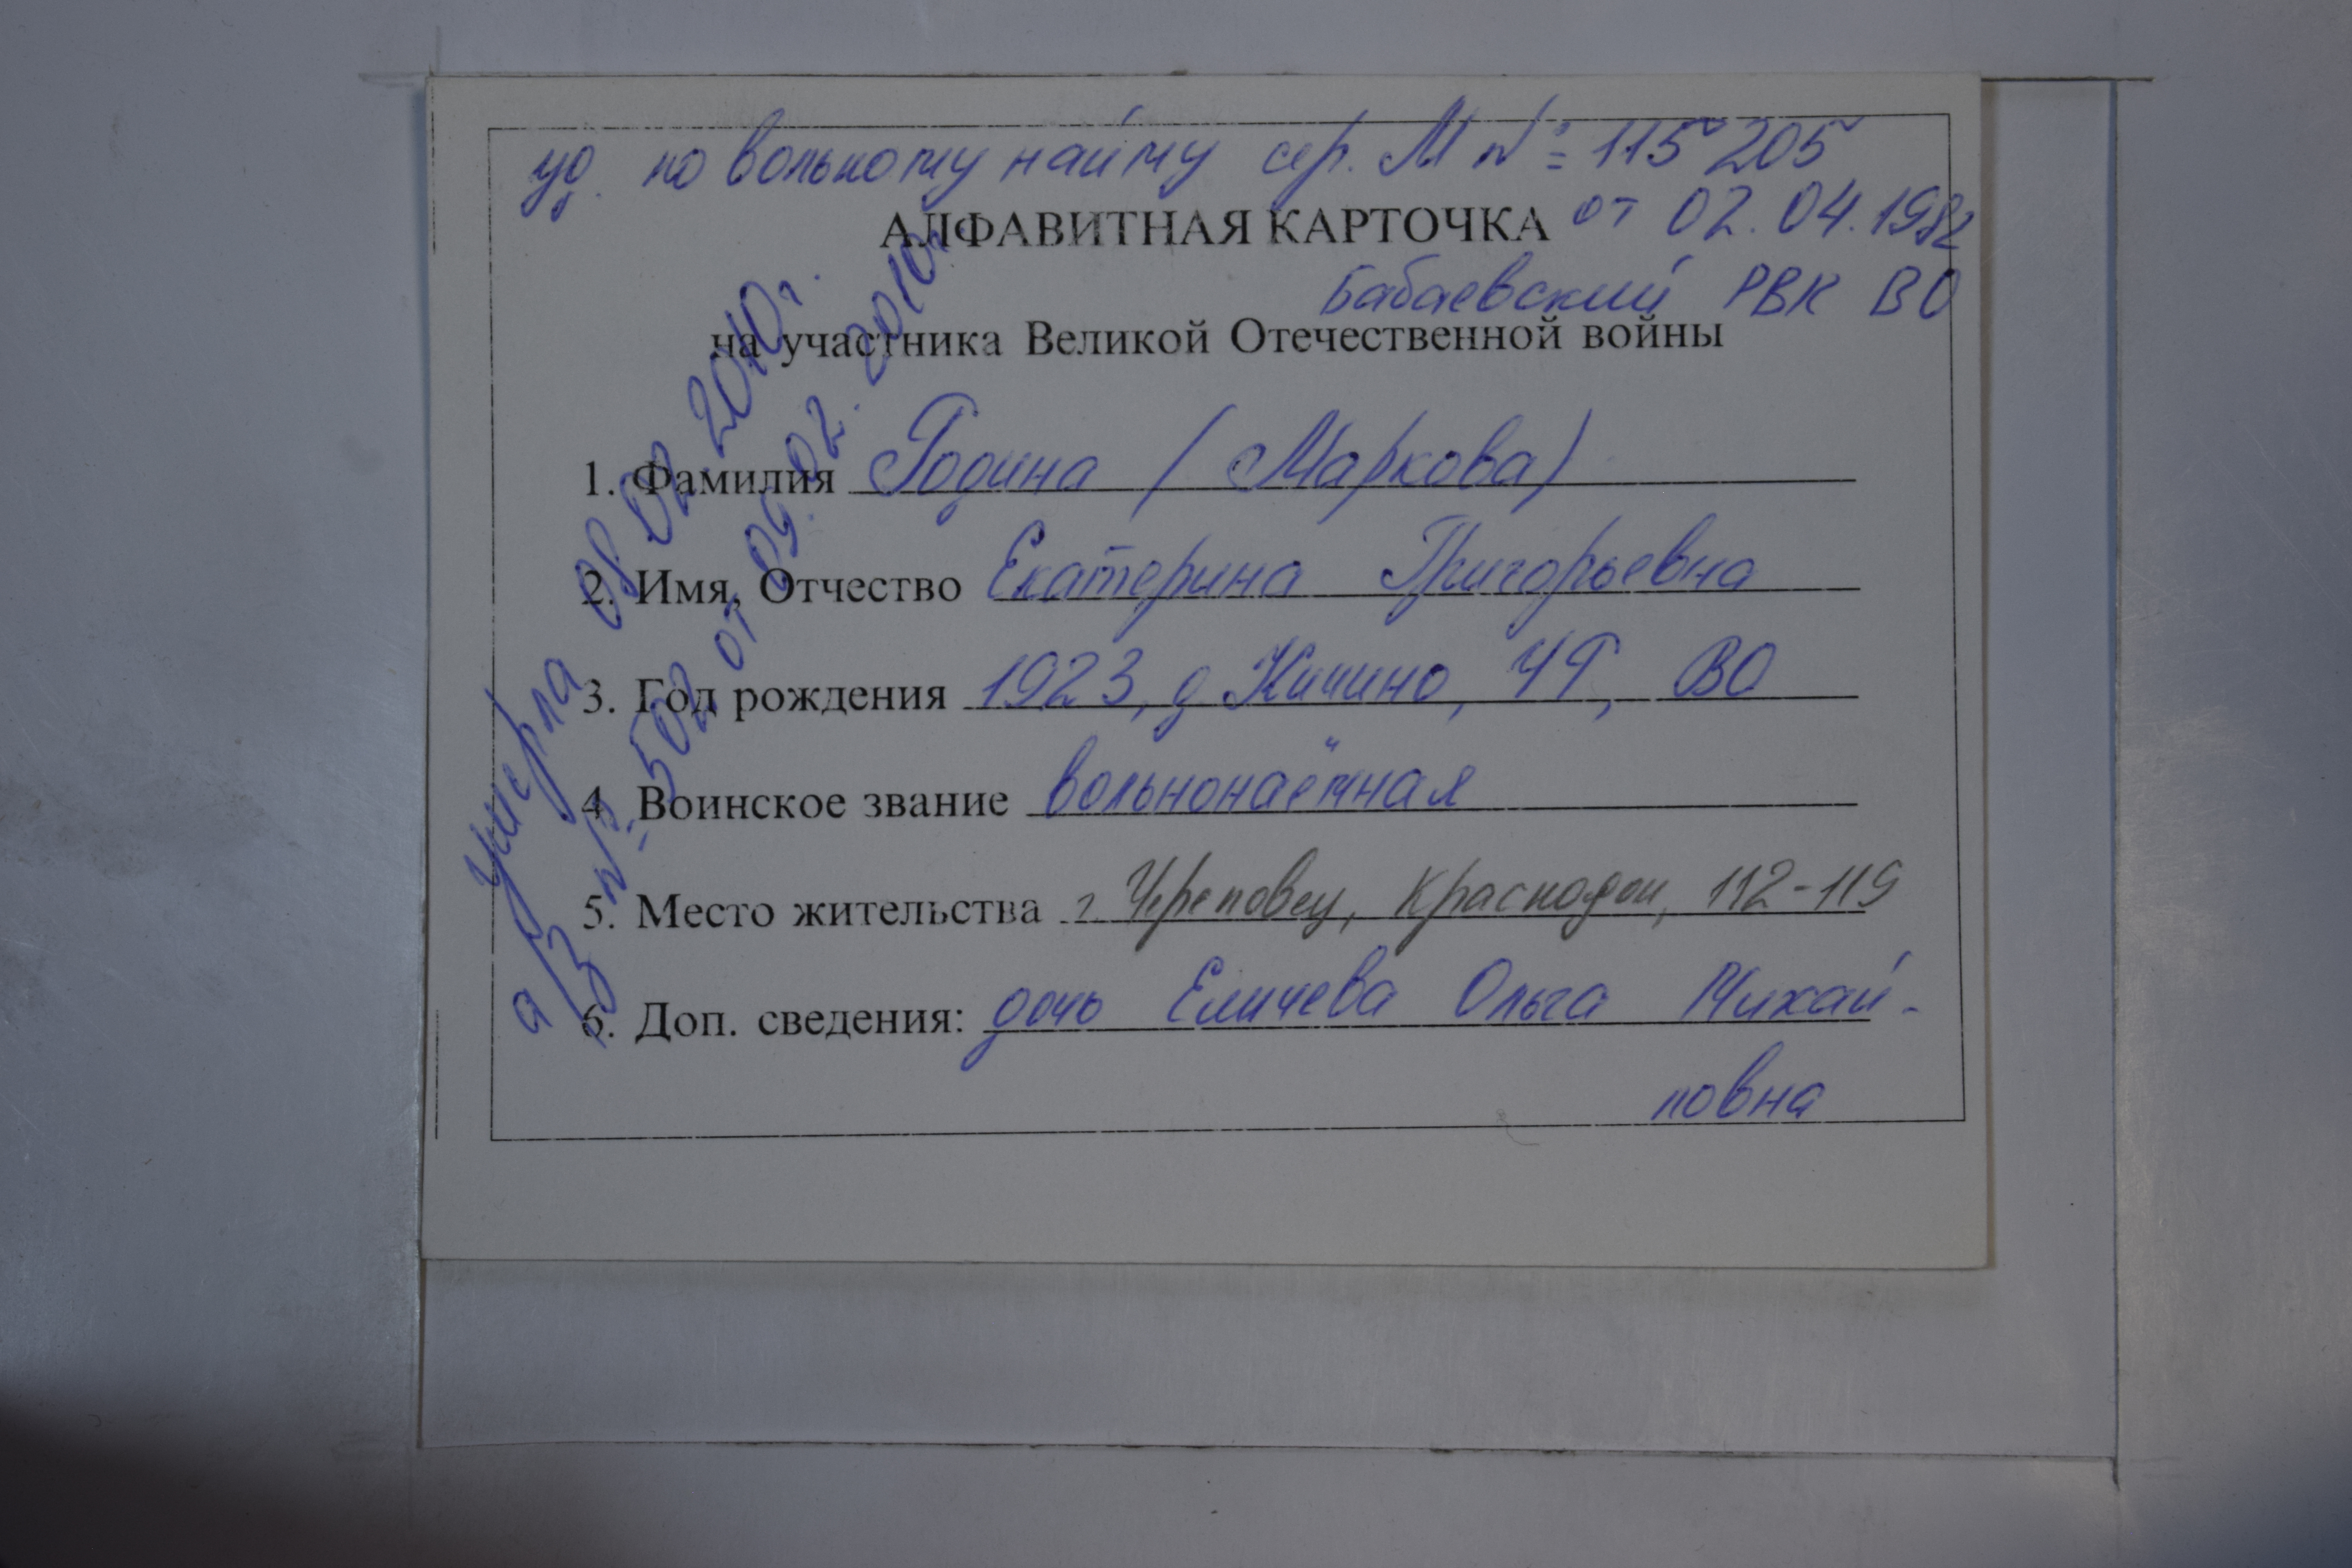 уд. по вольному найму сер. М № 115205
АЛФАВИТНАЯ КАРТОЧКА от 02.04.1982
Бабаевский РВК ВО
на участника Великой Отечественной войны
1. Фамилия Година (Маркова)
2. Имя, Отчество Екатерина Григорьевна
3. Год рождения 1923, д. Кичино, ЧР, ВО
4. Воинское звание вольнонаёмная
5. Место жительства г. Череповец, Краснодон, 112-119
6. Доп. сведения: дочь Еличева Ольга Михай-
ловна
Умерла 08.02.2010г.
а/з № 502 от 09.02.2010г.